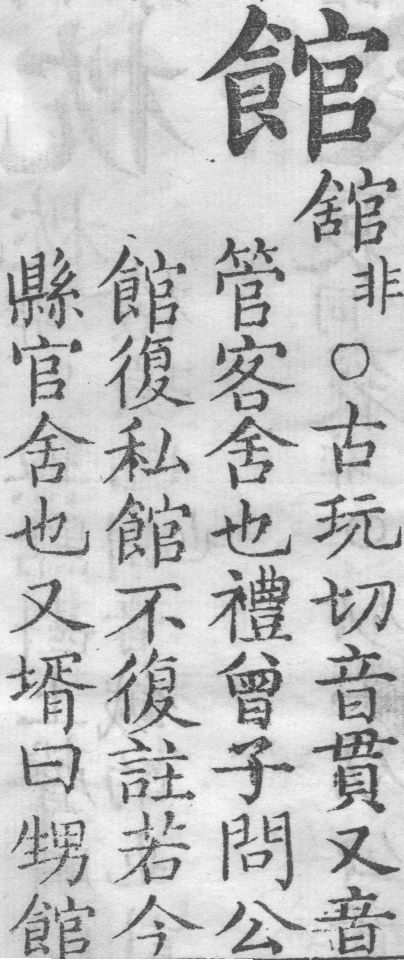 館
舘非○古玩切音貫又音
管客舍也禮曾子問公
館復私館不復註若今
縣官舍也又壻曰甥館